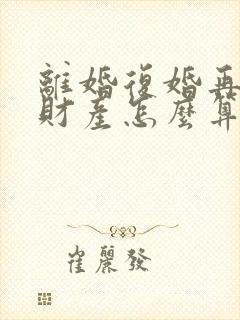 離婚復婚再
財產怎麼算
崔麗發